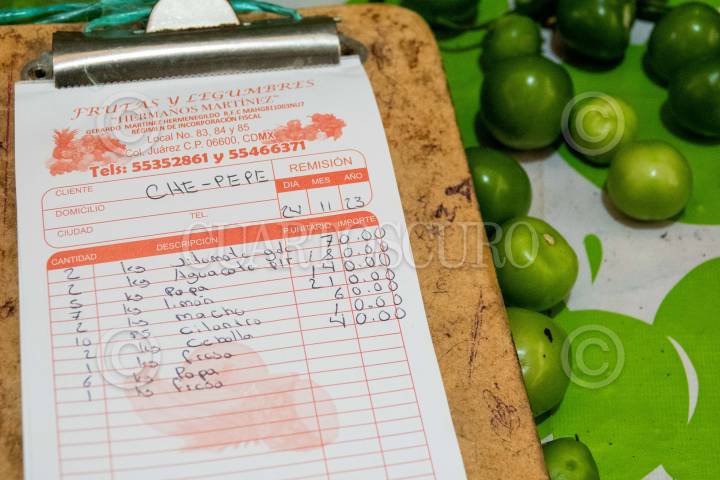 FRUTAS Y LEGUMBRES
"HERMANOS MARTÍNEZ"
GERARDO MARTINEZ HERMENEGILDO R.F.C MAHG811003NU7
RÉGIMEN DE INCORPORACIÓN FISCAL
Local No. 83, 84 y 85
Col. Juárez C.P. 06600, CDMX
Tels: 55352861 y 55466371
REMISIÓN
CLIENTE CHE-PEPE
DIA MES AÑO
DOMICILIO
24 11 23
CIUDAD TEL.
CANTIDAD DESCRIPCIÓN P. UNITARIO IMPORTE
2 kg Jitomate 70.00
2 kg Aguacate 180.00
5 kg Papa 140.00
7 kg limón 210.00
2 kg macho 60.00
10 cilantro 10.00
2 kg Cebolla 40.00
1 kg
6 kg Papa
1 kg
CUARTOSCURO
© © © © ©